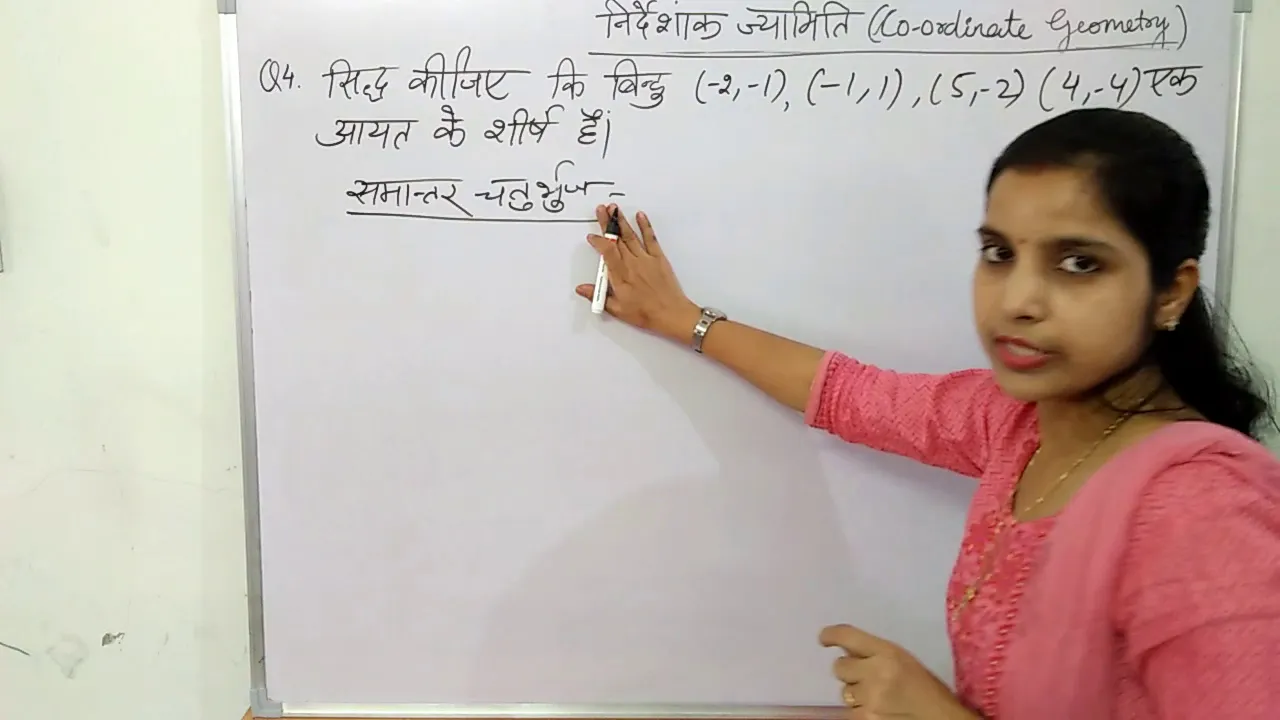 निर्देशांक ज्यामिति (Co-ordinate Geometry)
Q4. सिद्ध कीजिए कि बिन्दु (-2,-1), (-1,1), (5,-2) (4,-4) एक
आयत के शीर्ष हैं।
समान्तर चतुर्भुज -